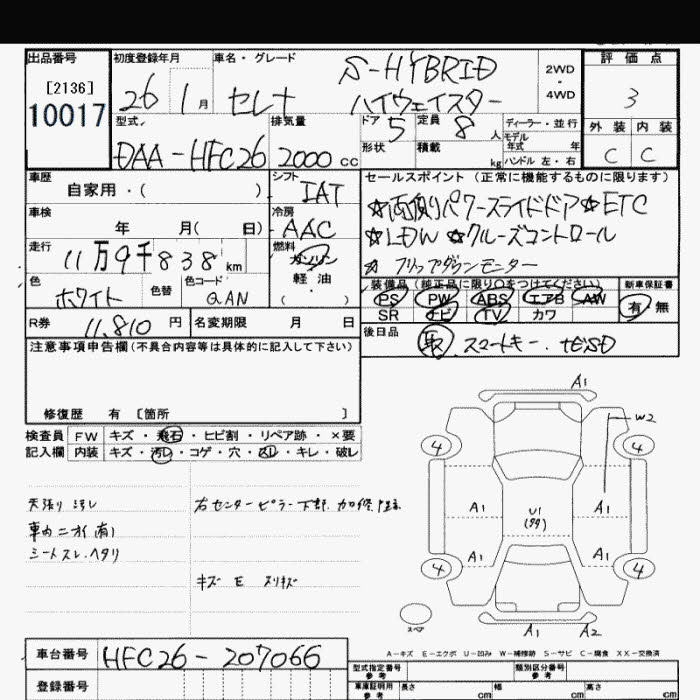 出品番号 初度登録年月 車名・グレード S-HYBRID 2WD・4WD 評価点
[2136]
10017
26 1月 セレナ ハイウェイスター 3
型式 排気量 ドア 5 定員 8人 ディーラー・並行 外装 内装
DAA-HFC26 2000cc 形状 積載 kg モデル年式 年 ハンドル 左・右 C C
車歴 シフト セールスポイント(正常に機能するものに限ります)
自家用・( ) IAT
☆両側パワースライドドア☆ETC
車検 冷房
年 月( 日) AAC
☆LDW ☆クルーズコントロール
走行 燃料
11万9千838km ガソリン
☆フリップダウンモニター
軽油
色 色替 色コード ( )
ホワイト QAN
装備品(純正品に限り○をつけてください) 新車保証書
PS PW ABS エアB AW 有・無
SR ナビ TV カワ
R券 11,810円 名変期限 月 日
後日品
取、スマートキー.
注意事項申告欄(不具合内容等は具体的に記入して下さい)
修復歴 有 〔箇所 〕
検査員 FW キズ・飛石・ヒビ割・リペア跡・×要
記入欄 内装 キズ・汚レ・コゲ・穴・スレ・キレ・破レ
天張り 汚レ
車内ニオイ有り
シートスレ.ヘタリ
右センターピラー下部.加修
キズ E スリキズ
A1
W2
4 4
A1 U1 A1
A1 A1
4 4
スペア
A1 A2
A-キズ E-エクボ U-凹み W-補修跡 S-サビ C-腐食 XX-交換済
車台番号 HFC26-207066
登録番号
型式指定番号 参考 類別区分番号 参考
車庫証明用 参考 長さ cm 幅 cm 高さ cm